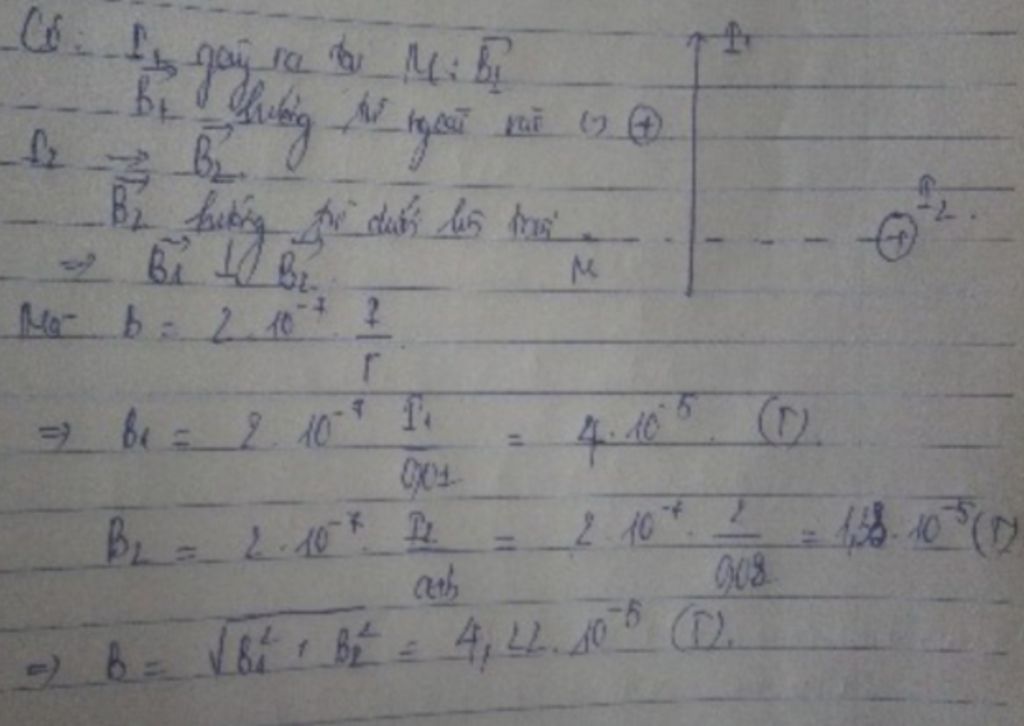 Có: I₁ gây ra tại M: B₁⃗
B₁⃗ hướng từ ngoài vào (+) ⊕
I₂ ⇒ B₂⃗
B₂⃗ hướng từ dưới lên trên
⇒ B₁⃗ ⊥ B₂⃗
Mà B = 2 . 10⁻⁷ . I / r
⇒ B₁ = 2 . 10⁻⁷ I₁ / 0,01 = 4 . 10⁻⁵ (T).
B₂ = 2 . 10⁻⁷ . I₂ / a+b = 2 . 10⁻⁷ . 2 / 0,03 = 1,33 . 10⁻⁵ (T)
⇒ B = √(B₁² + B₂²) = 4,22 . 10⁻⁵ (T).
I₁
I₂
M